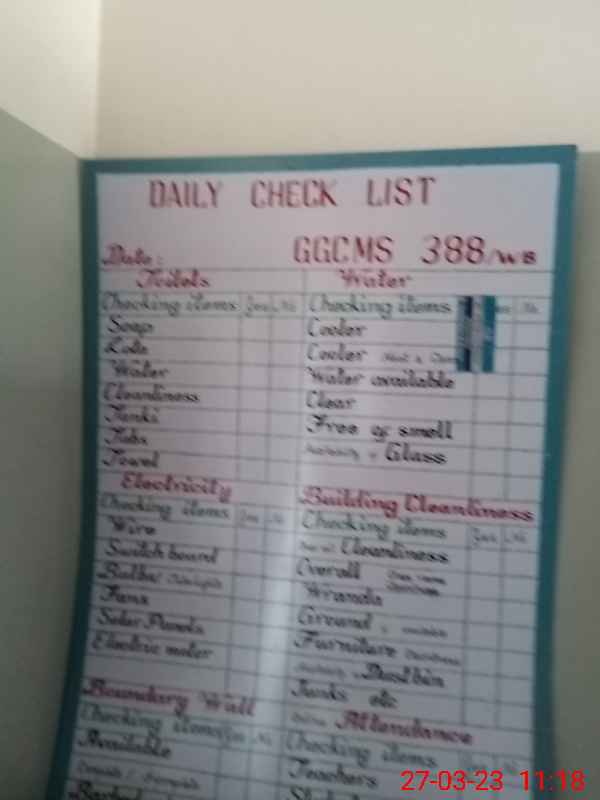 DAILY CHECK LIST
Date: GGCMS 388/WB
Toilets
Checking items Yes No
Soap
Lota
Water
Cleanliness
Tanki
Tubs
Towel
Water
Checking items No
Cooler
Cooler
Water available
Clear
Free of smell
Availability of Glass
Electricity
Checking items Yes No
Wire
Switch board
Bulbs/ Tube lights
Fans
Solar Panels
Electric meter
Building Cleanliness
Checking items Yes No
Cleanliness
Overall
Wranda
Ground
Furniture
Availability Dustbin
Junks etc
Boundary Wall
Checking items Yes No
Available
Complete /
Attendance
Checking items Yes No
Teachers
27-03-23 11:18